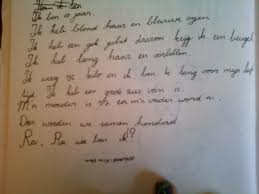 Ik ben 10 jaar.
Ik heb blond haar en blauwe ogen
Ik heb een gek gebit daarom krijg ik een beugel
Ik heb lang haar en
Ik weeg kilo en ik ben te lang voor mijn leef
tijd. Ik heb een grote zus van
M'n moeder is en m'n vader word
Dan worden we samen honderd
Ra, Ra wie ben ik?